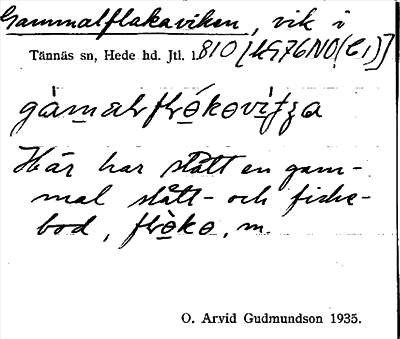 Gammalflakaviken, vik i
Tännäs sn, Hede hd. Jtl. 1.810 [KG76NO(C1)]
Här har stått en gam-
mal slått- och fiske-
bod, m.
O. Arvid Gudmundson 1935.